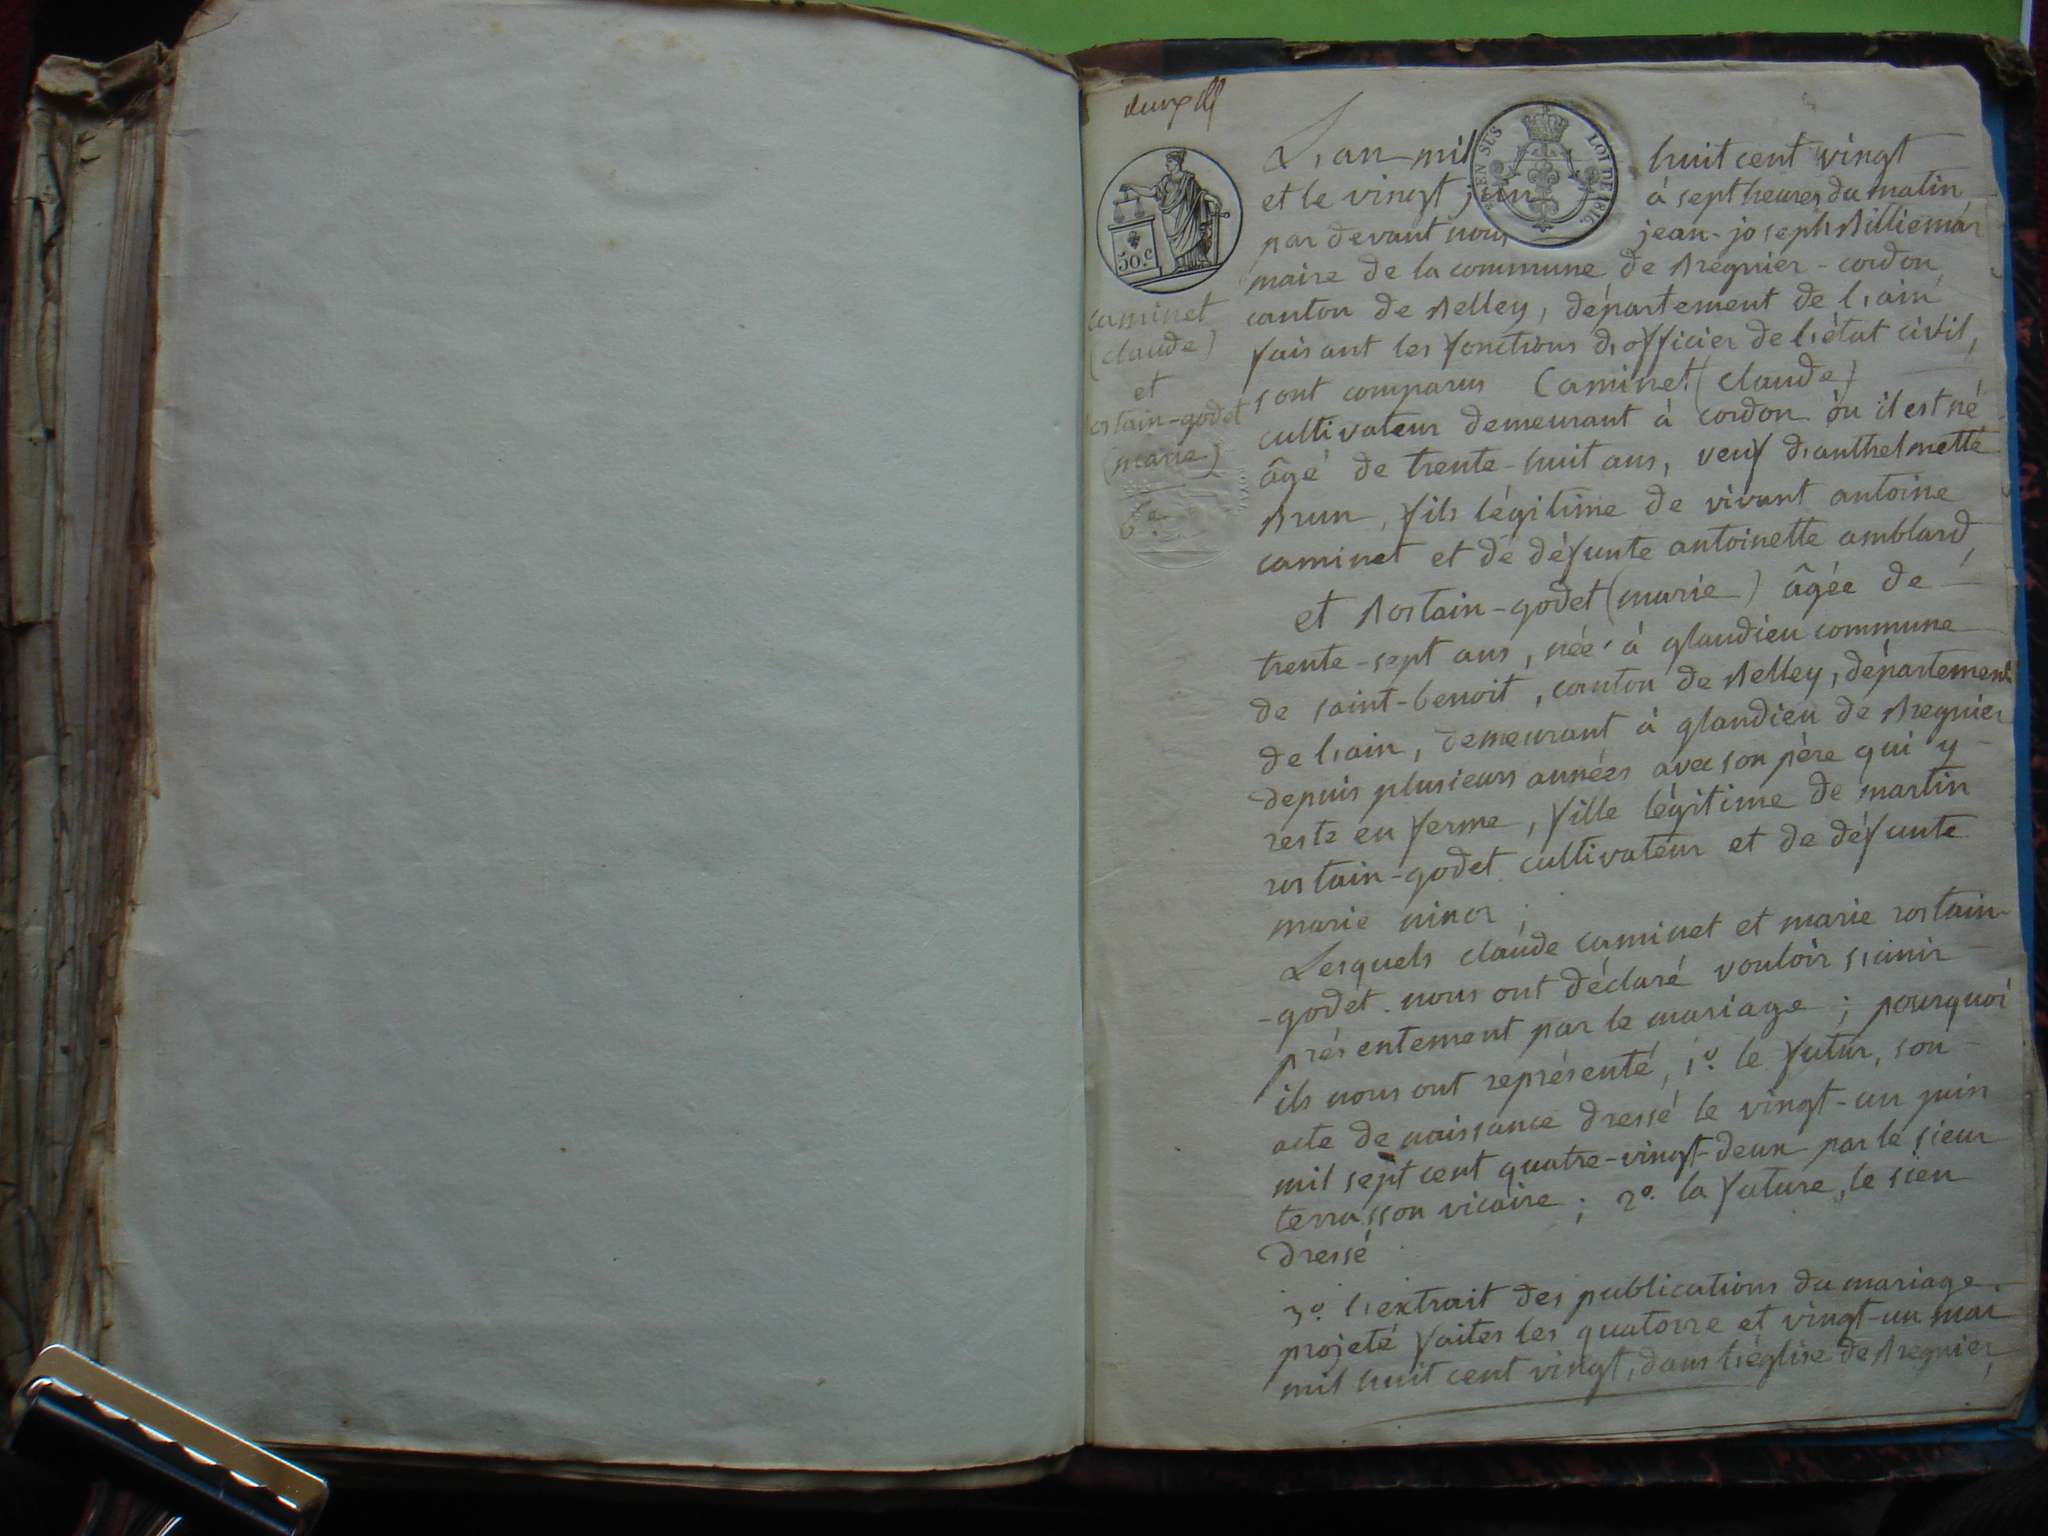 L'an mil huit cent vingt
et le vingt juin à sept heures du matin
par devant nous jean-joseph Billiemaz
maire de la commune de Bregnier-cordon
canton de Belley, département de l'ain
faisant les fonctions d'officier de l'état civil,
sont comparus Caminet (claude)
cultivateur demeurant à cordon où il est né
âgé de trente-huit ans, veuf d'anthelmette
Brun, fils légitime de vivant antoine
caminet et de défunte antoinette amblard,
et Rostain-godet (marie) âgée de
trente-sept ans, née à glandieu commune
de saint-benoit, canton de Belley, département
de l'ain, demeurant à glandieu de Bregnier
depuis plusieurs années avec son père qui y
reste en ferme, fille légitime de martin
rostain-godet cultivateur et de défunte
marie ;
Lesquels claude caminet et marie rostain-
-godet nous ont déclaré vouloir s'unir
présentement par le mariage ; pourquoi
ils nous ont représenté, 1º. le futur, son
acte de naissance dressé le vingt-un juin
mil sept cent quatre-vingt-deux par le sieur
terrasson vicaire ; 2º. la future, le sien
dressé
3º. l'extrait des publications du mariage
projeté faites les quatorze et vingt-un mai
mil huit cent vingt, dans l'église de Bregnier,
caminet
(claude)
et
rostain-godet
(marie)
6e.
50.c
EN SUS
LOI DE 1816